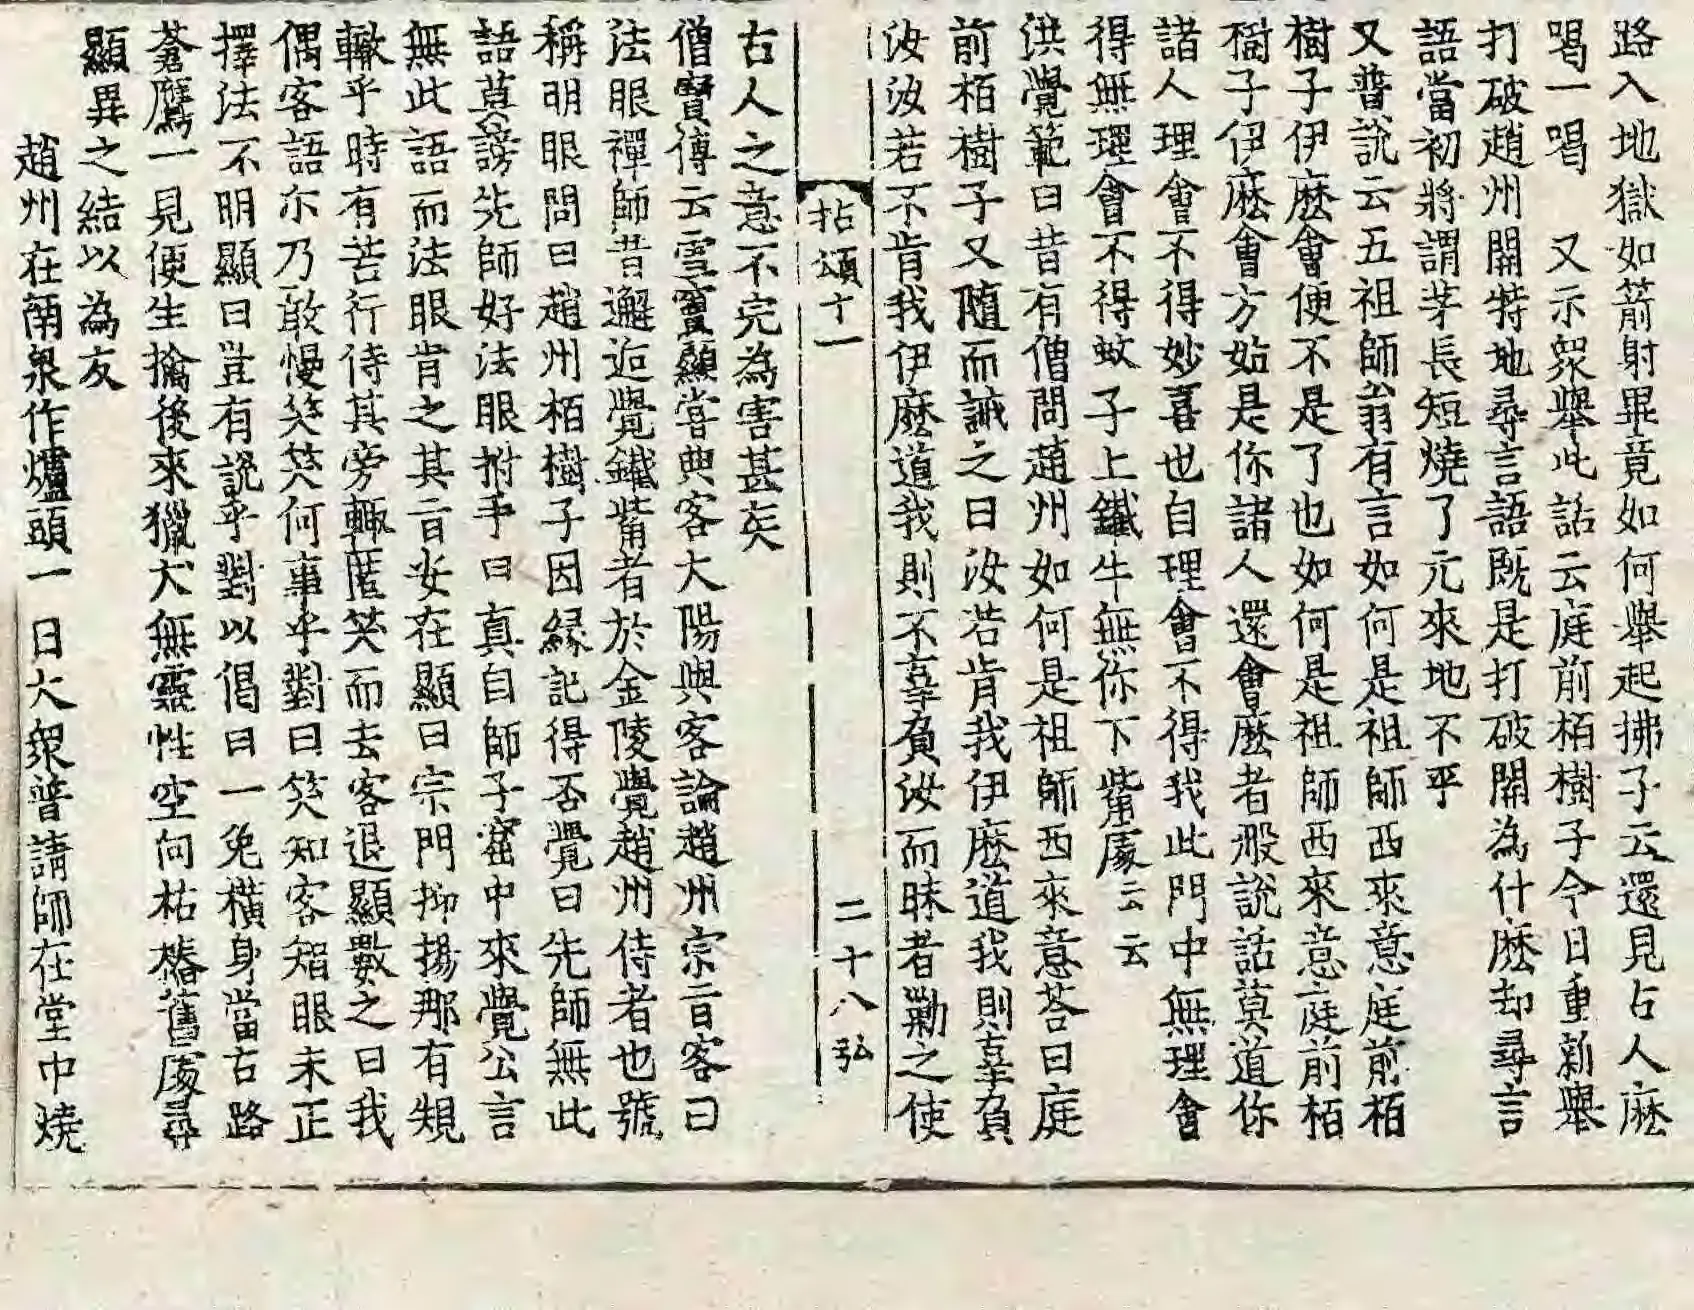 路入地獄如箭射畢竟如何舉起拂子云還見古人麽
喝一喝　又示衆舉此話云庭前栢樹子今日重新舉
打破趙州關特地尋言語旣是打破關為什麽却尋言
語當初將謂茅長短燒了元來地不平
又普說云五祖師翁有言如何是祖師西來意庭前栢
樹子伊麽會便不是了也如何是祖師西來意庭前栢
樹子伊麽會方始是你諸人還會麽者般說話莫道你
諸人理會不得妙喜也自理會不得我此門中無理會
得無理會不得蚊子上鐵牛無你下觜處云云
洪覺範曰昔有僧問趙州如何是祖師西來意荅曰庭
前栢樹子又隨而誡之曰汝若肯我伊麽道我則辜負
汝汝若不肯我伊麽道我則不辜負汝而昧者勦之使
拈頌十一　二十八弘
古人之意不完為害甚矣
僧寶傳云雪竇顯甞典客大陽與客論趙州宗旨客曰
法眼禪師昔邂逅覺鐵觜者於金陵覺趙州侍者也號
稱明眼問曰趙州栢樹子因緣記得否覺曰先師無此
語莫謗先師好法眼拊手曰真自師子窟中來覺公言
無此語而法眼肯之其旨安在顯曰宗門抑揚那有規
轍乎時有苦行侍其旁輒匿笑而去客退顯數之曰我
偶客語尒乃敢慢笑笑何事乎對曰笑知客智眼未正
擇法不明顯曰豈有說乎對以偈曰一兔橫身當古路
蒼鷹一見便生擒後來獵犬無靈性空向枯樁舊處尋
顯異之結以為友
趙州在南泉作爐頭一日大衆普請師在堂中燒